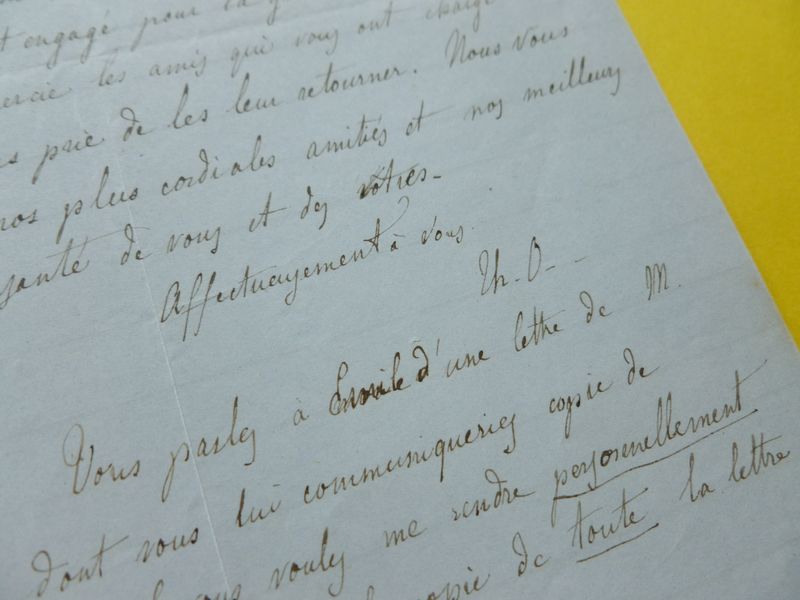 t engagé pour la
ercie les amis qui vous ont chargé
prie de les leur retourner. Nous vous
nos plus cordiales amitiés et nos meilleurs
santé de vous et des vôtres-
Affectueusement à vous.
Th. O--
Vous parlez à Emile d'une lettre de M.
dont vous lui communiqueriez copie de
vous voulez me rendre personnellement
copie de toute la lettre